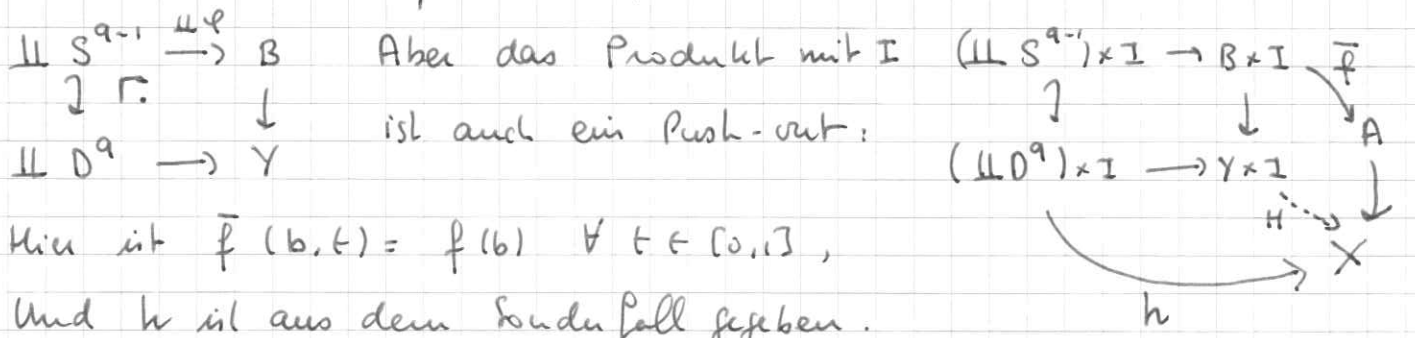 ∐ S^{q-1} →^{∐φ} B Aber das Produkt mit I (∐ S^{q-1}) × I → B × I f̄
↓ ⌜· ↓ ist auch ein Push-out: ↓ ↓ A
∐ D^q → Y (∐ D^q) × I → Y × I ↓
H X
Hier ist f̄ (b,t) = f(b) ∀ t ∈ [0,1],
Und h ist aus dem Sonderfall gegeben. h